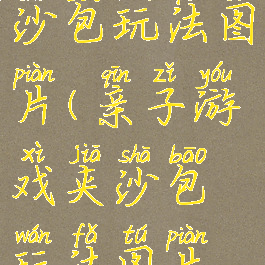 沙包玩法图
piàn qīn zǐ yóu
片(亲子游
xì jiā shā bāo
戏夹沙包
wán fǎ tú piàn
玩法图片